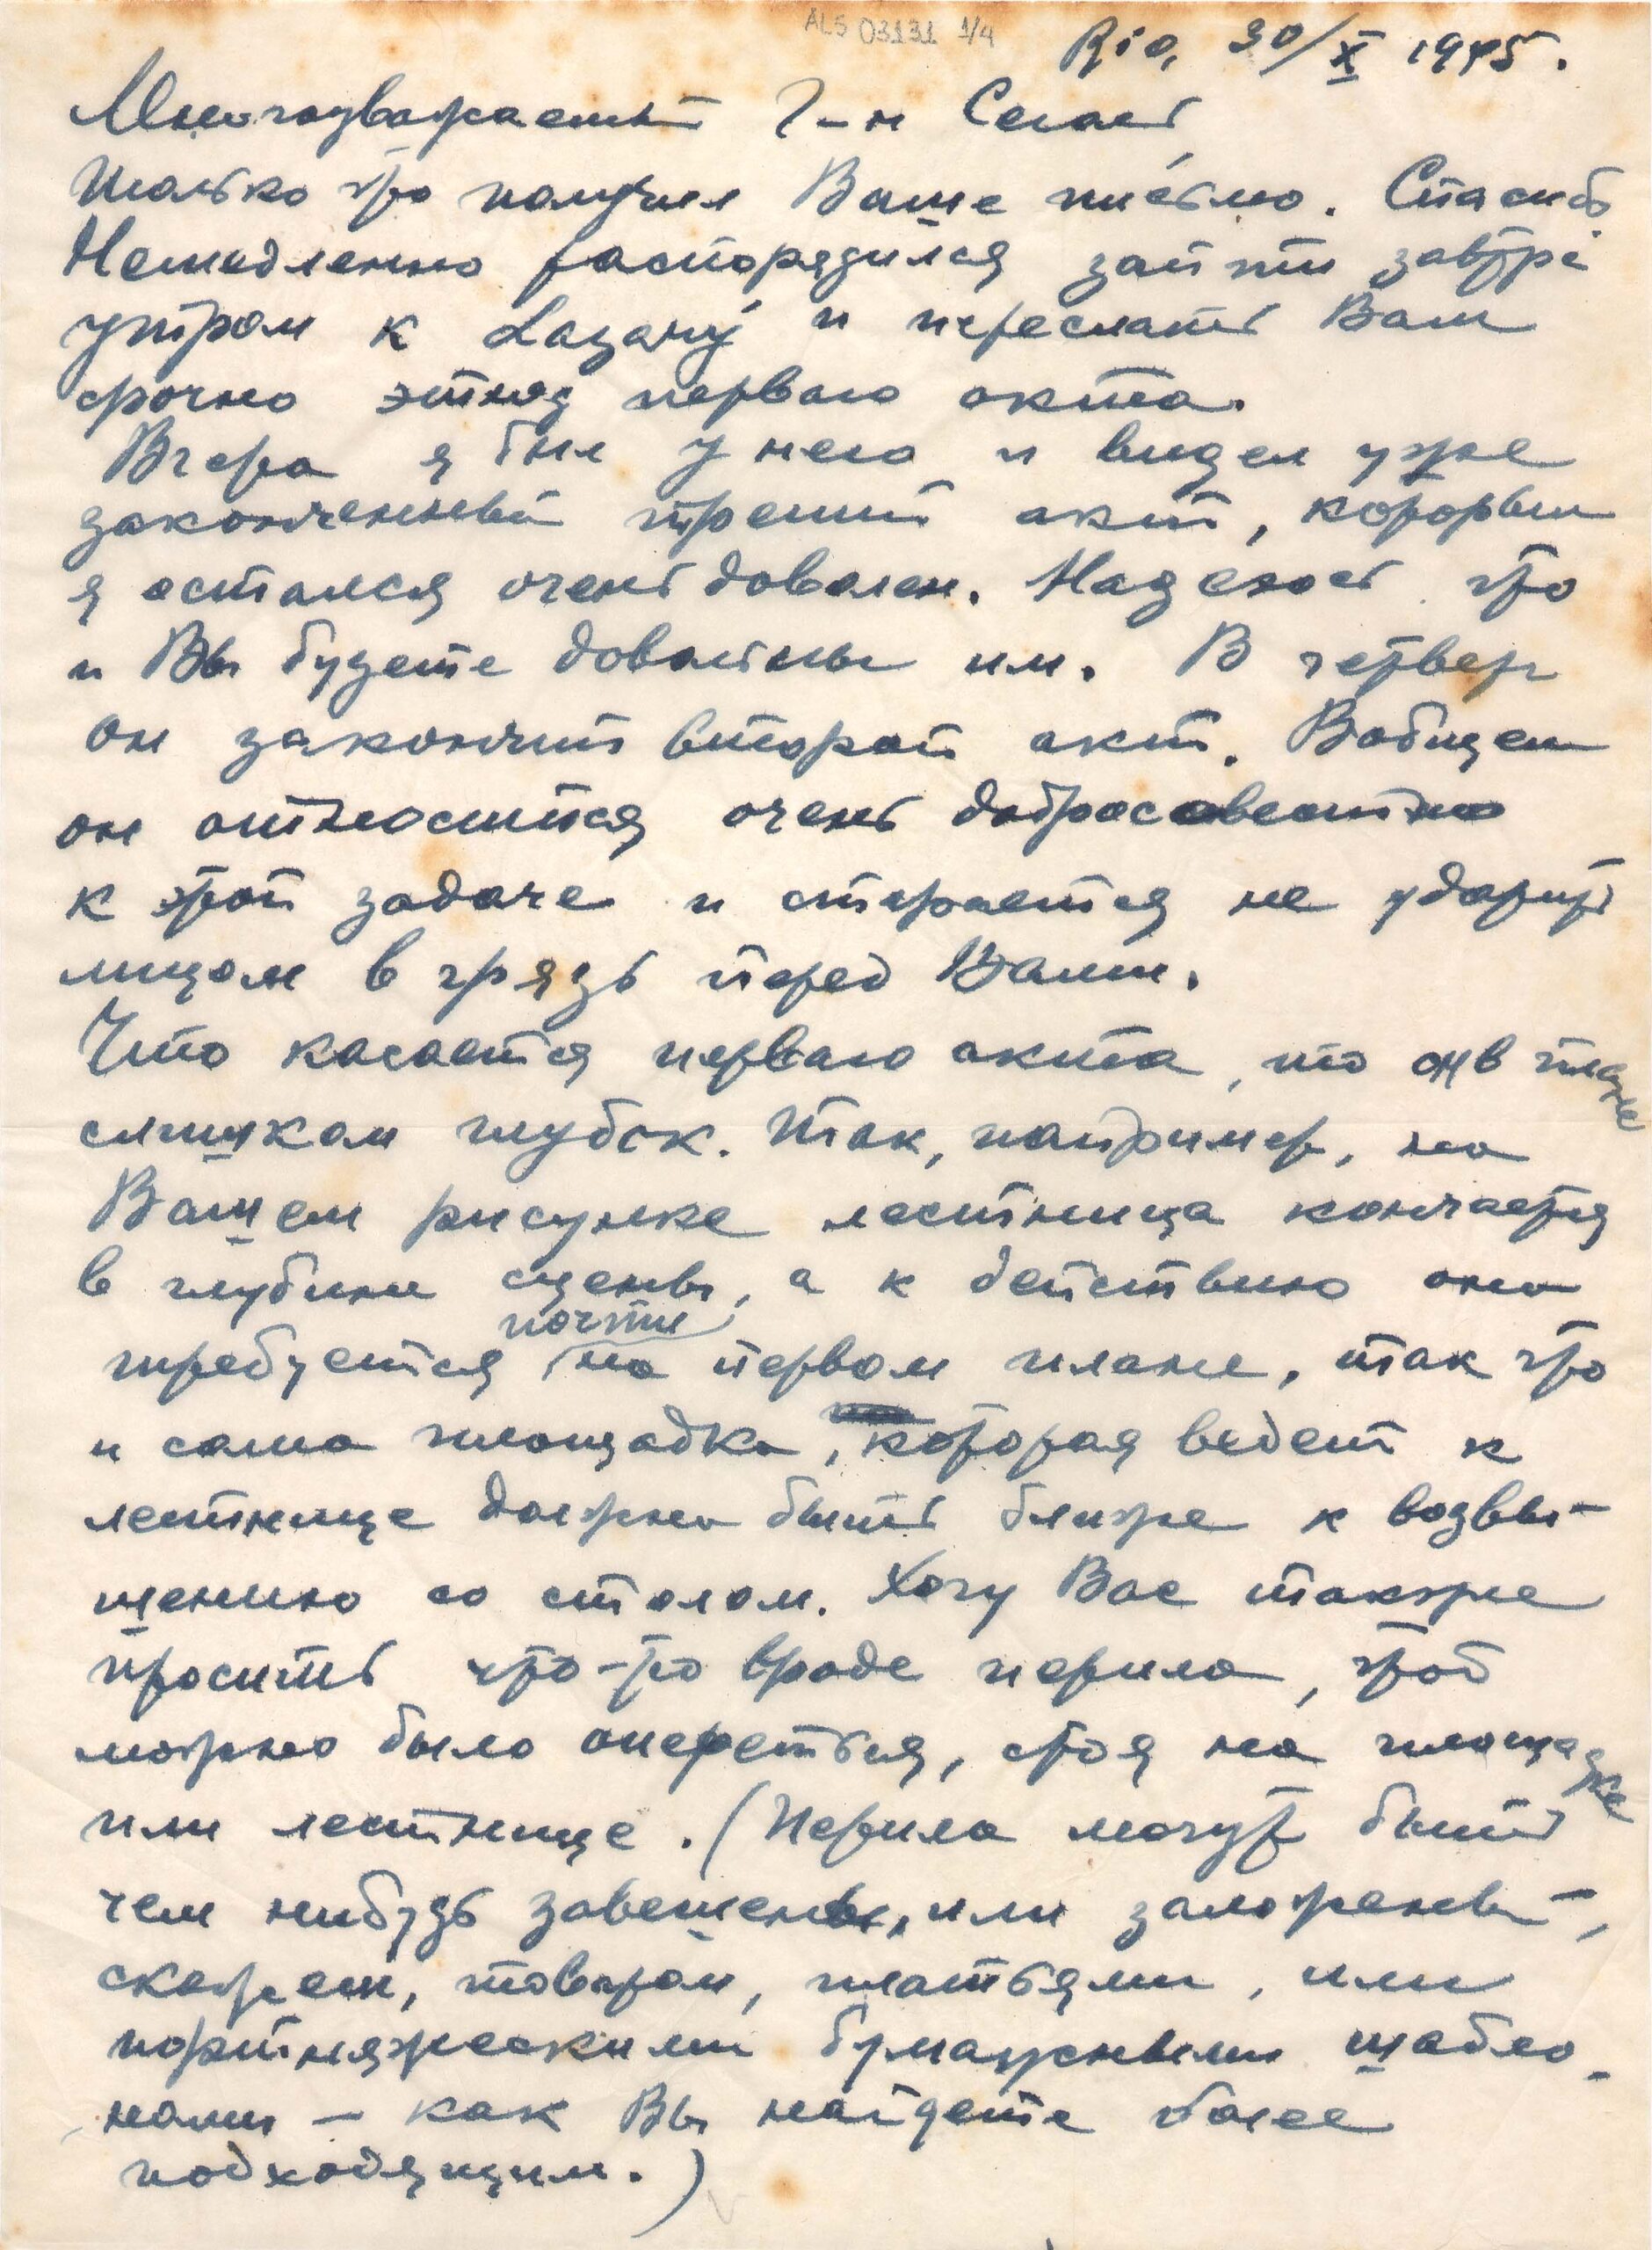 ALS 03131 1/4
Rio, 30/X 1945.
Многоуважаемый Г-н Сегал,
Только что получил Ваше письмо. Спасибо
Немедленно распорядился зайти завтра
утром к Lazary и переслать Вам
срочно этюд первого акта.
Вчера я был у него и видел уже
законченный третий акт, которым
я остался очень доволен. Надеюсь что
и Вы будете довольны им. В четверг
он закончит второй акт. Вобщем
он относится очень добросовестно
к этой задаче и старается не ударить
лицом в грязь перед Вами.
Что касается первого акта, то он в плане
слишком глубок. Так, например, на
Вашем рисунке лестница кончается
в глубине сцены, а к действию она
почти
требуется на первом плане, так что
и сама площадка, которая ведет к
лестнице должна быть ближе к возвы-
шению со столом. Хочу Вас также
просить что-то вроде перила, чтоб
можно было опереться, стоя на площадке
или лестнице. (Перила могут быть
чем нибудь завешены, или заложены —,
скажем, товаром, платьями, или
портняжескими бумажными шабло-
нами — как Вы найдете более
подходящим.)